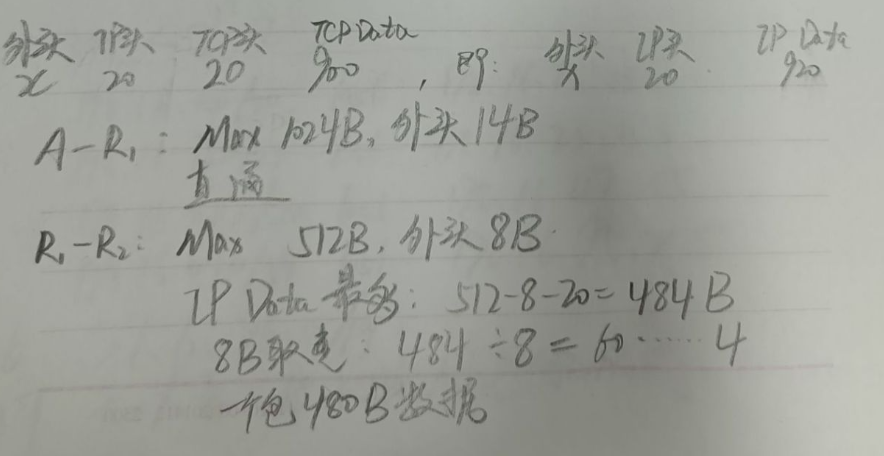 外头 IP头 TCP头 TCP Data
x 20 20 900 , 即: 外头 IP头 IP Data
x 20 920
A-R₁: Max 1024B, 外头14B
直通
R₁-R₂: Max 512B, 外头8B.
IP Data 最多: 512-8-20=484B
8B取整: 484÷8=60……4
一个包480B数据